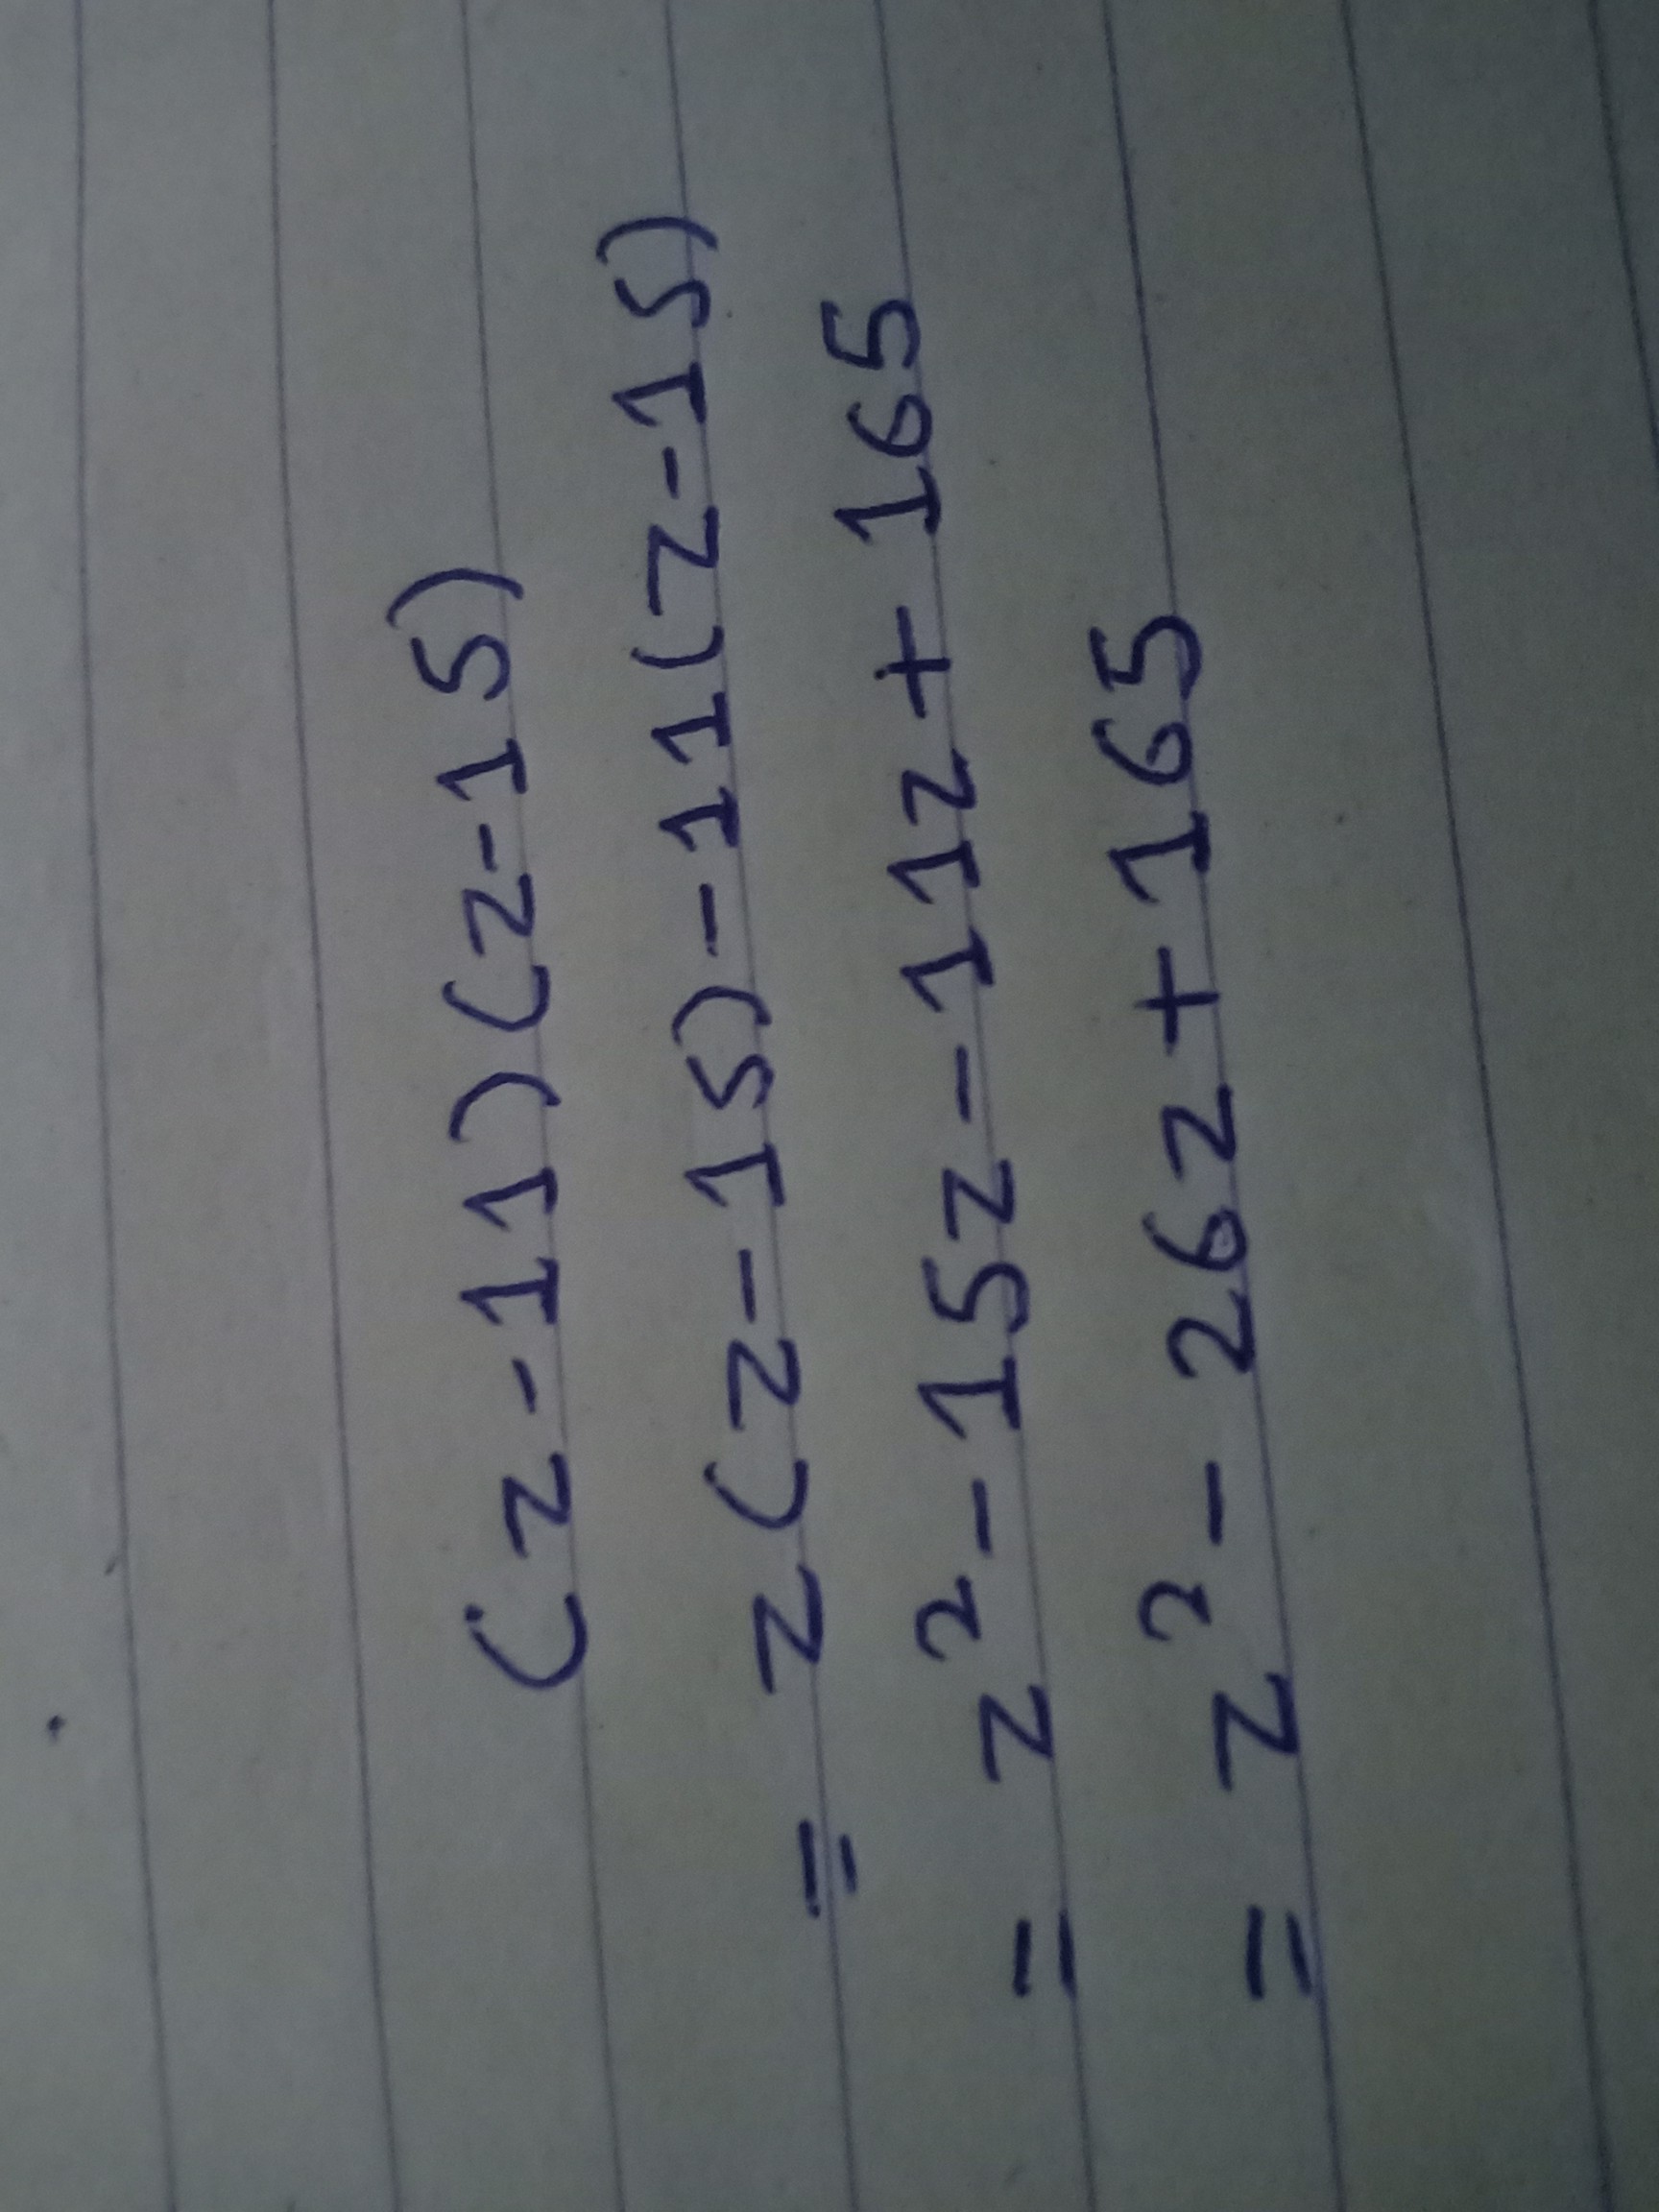 (z-11)(z-15)
= z(z-15)-11(z-15)
= z²-15z-11z+165
= z²-26z+165